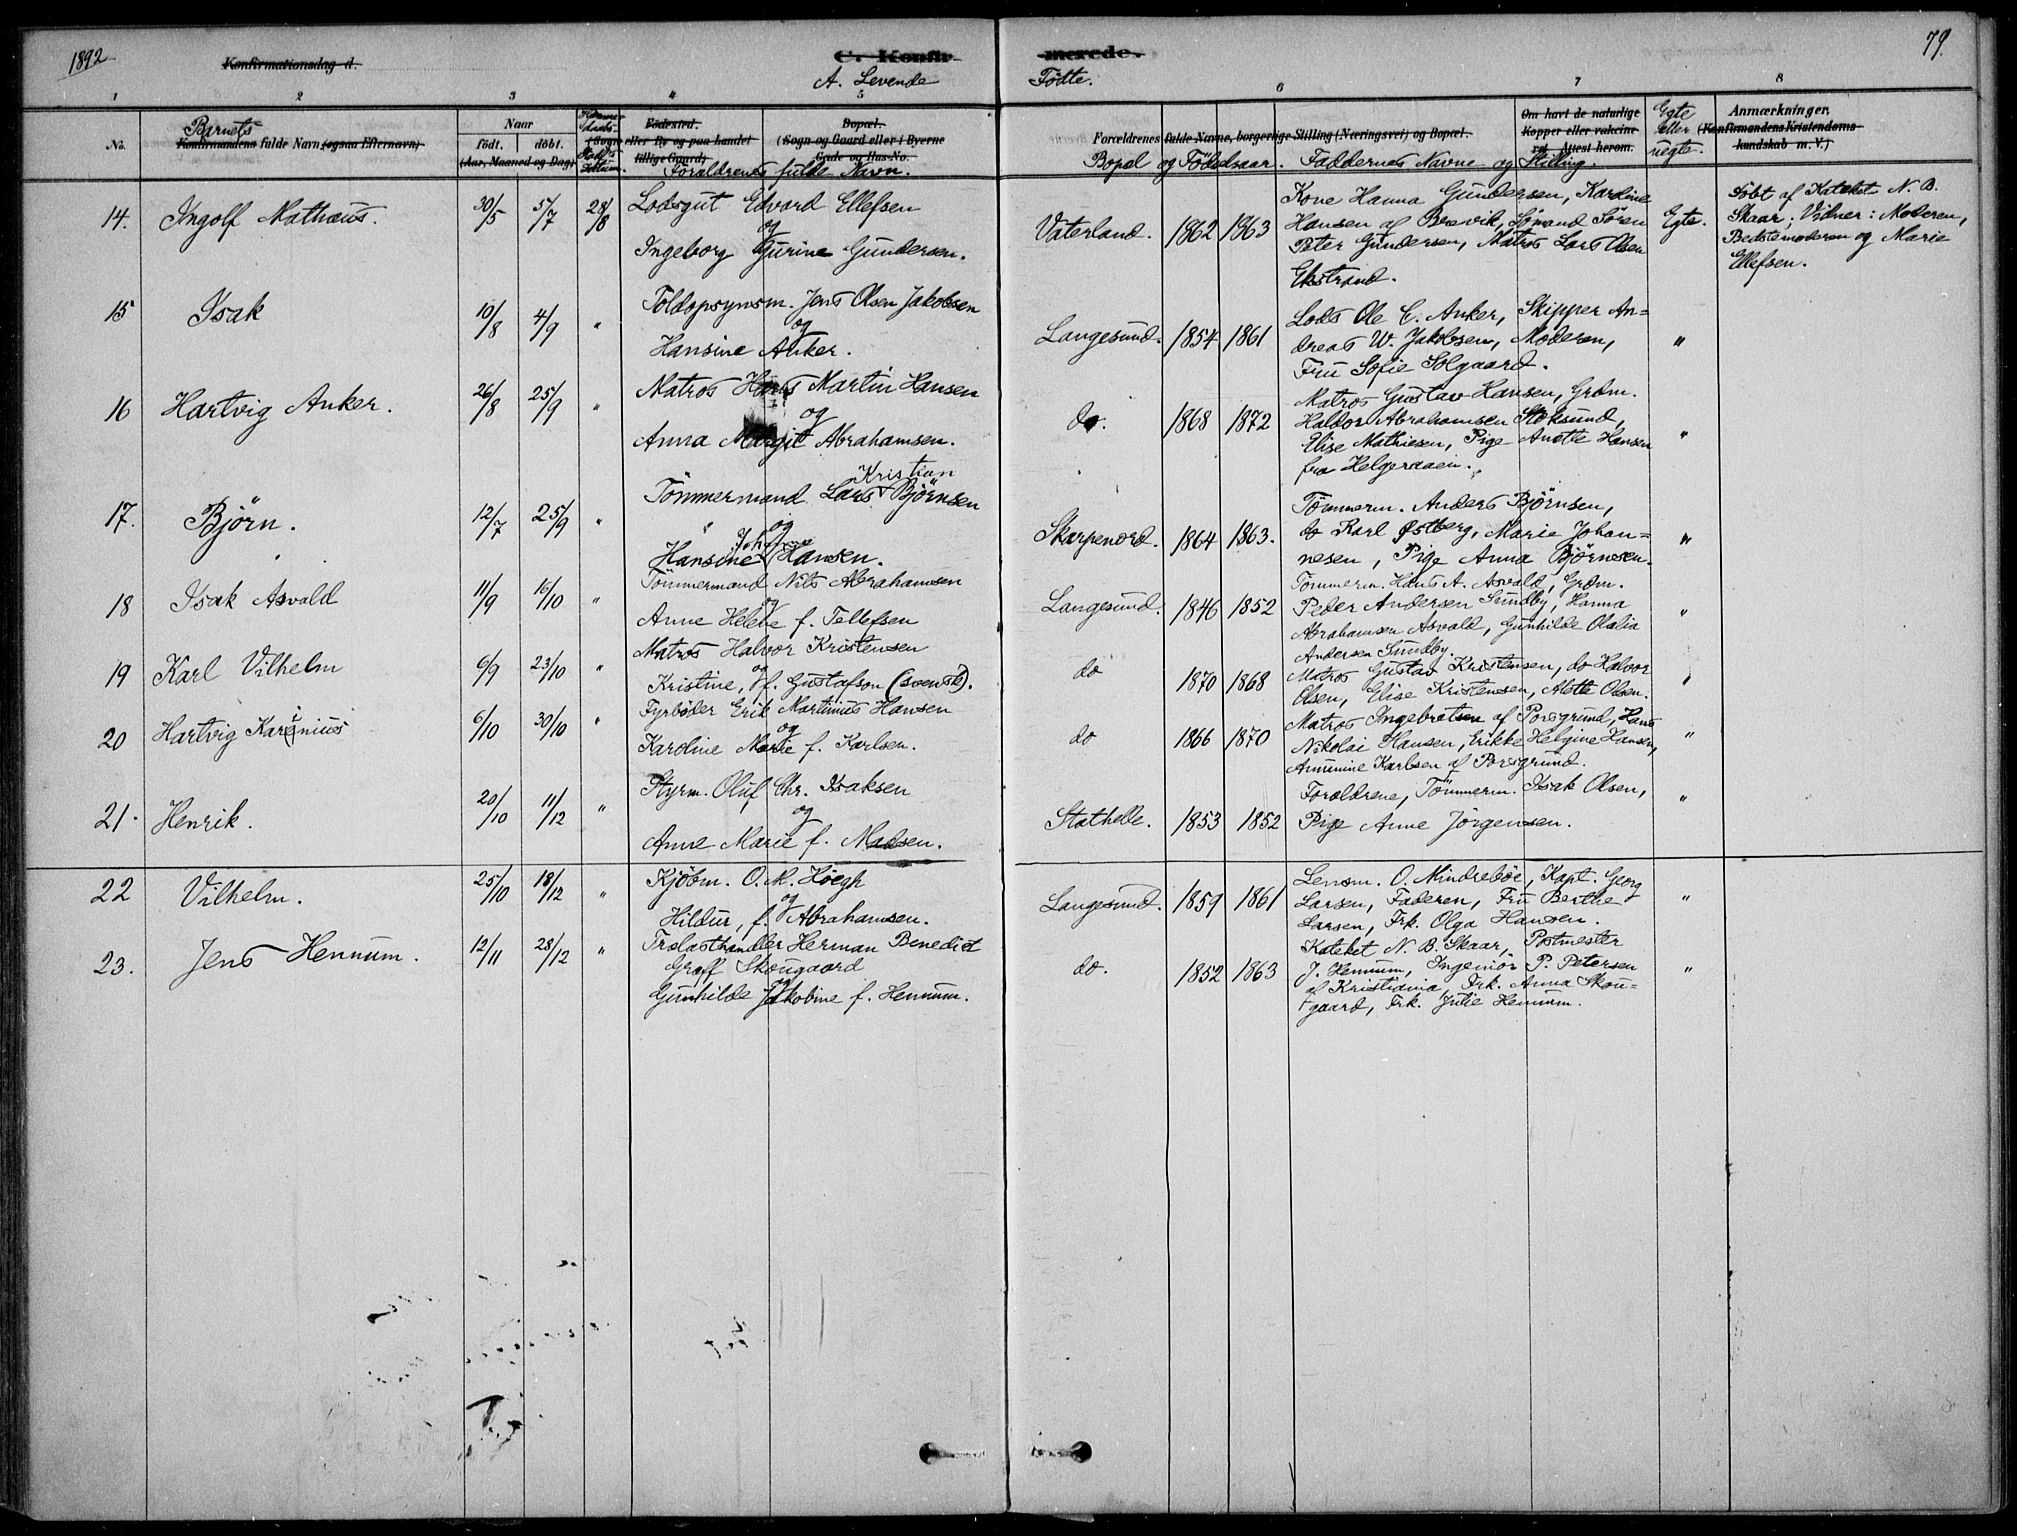 1892
Konfirmationsdag d.
C. Konfir-
merede.
79.
A. Levende
Fødte.
1 2 3 4 5 6 7 8
No.
Barnets
Konfirmandens fulde Navn (ogsaa Efternavn)
Naar
født. døbt.
(Aar, Maaned og Dag)
Fødested.
(Sogn eller By og paa landet
tillige Gaard)
Bopæl.
(Sogn og Gaard eller i Byerne
Gade og Hus-No.
Forældrenes fulde Navn.
Forældrenes fulde Navne, borgerlige Stilling (Næringsvei) og Bopæl.
Bopæl og Fødselsaar. Faddernes Navne og Stilling.
Om havt de naturlige
Kopper eller vakcine-
ret. Attest herom.
Egte
eller
uegte.
Anmærkninger,
(Konfirmandens Kristendoms-
kundskab m. V.)
14. Ingolf Mathæus. 30/5 5/7 28/8 Lodsgut Edvard Ellefsen
og
Ingeborg Gurine Gundersen.
Vaterland. 1862 1863
Kone Hanna Gundersen, Kardine
Hansen af Brevik, Sømand Søren
Peter Gundersen, Matros Lars Olsen
Ekstrand.
Egte.
Døbt af Kateket N. B.
Skaar; Vidner: Moderen,
Bedstemoderen og Marie
Ellefsen.
15 Isak 10/8 4/9 " Toldopsynsm. Jens Olsen Jakobsen
og
Hansine Anker.
Langesund. 1854 1861
Lods Ole C. Anker, Skipper An=
dreas W. Jakobsen, Moderen,
Fru Sofie Solgaard.
"
16 Hartvig Anker. 26/8 25/9 " Matros Hans Martin Hansen
og
Anna Margit Abrahamsen.
do. 1868 1872
Matros Gustav Hansen, Grøm.
Haldor Abrahamsen Stoksund,
Elise Mathiesen, Pige Anette Hansen
fra Helgeraaen.
"
17. Björn. 12/7 25/9 " Tömmermand Lars Kristian Björnsen
og
Hansine Johanne Hansen.
Skarpenord. 1864 1863.
Tömmerm. Anders Björnsen,
do Karl Østberg, Marie Johan=
nesen, Pige Anna Björnsen.
"
18 Isak Asvald 11/9 16/10 " Tömmermand Nils Abrahamsen
og
Anne Helene f. Tellefsen
Langesund. 1846 1852
Tømmerm. Hans A. Asvald, Grøm.
Peder Andersen Sundby, Hanna
Abrahamsen Asvald, Gunhilde Olalia
Andersen Sundby.
"
19 Karl Vilhelm 6/9 23/10 " Matros Halvor Kristensen
og
Kristine, f. Gustafson (svensk).
do 1870 1868
Matros Gustav Kristensen, do Halvor
Olsen, Elise Kristensen, Alette Olsen.
"
20 Hartvig Karinius 6/10 30/10 " Fyrbøder Erik Martinius Hansen
og
Karoline Marie f. Karlsen.
do 1866 1870
Matros Ingebretsen af Porsgrund, Hans
Nikolai Hansen, Erikke Helgine Hansen,
Annmine Karlsen af Porsgrund.
"
21. Henrik. 20/10 11/12 " Styrm. Oluf Chr. Isaksen
og
Anne Marie f. Madsen.
Stathelle. 1853 1852
Forældrene, Tömmerm. Isak Olsen,
Pige Anne Jörgensen.
"
22 Vilhelm. 25/10 18/12 " Kjøbm. O. M. Höegh
og
Hildur, f. Abrahamsen.
Langesund. 1859 1861
Lensm. O. Mindreböe, Kapt. Georg
Larsen, Faderen, Fru Berthe
Larsen, Frk. Olga Hansen.
"
23. Jens Hennum. 12/11 28/12 " Trælasthandler Herman Benedict
Graff Skougaard
og
Gunhilde Jakobine f. Hennum.
do. 1852 1863
Kateket N. B. Skaar, Postmester
J. Hennum, Ingeniör P. Petersen
af Kristiania, Frk. Anna Skou=
gaard, Frk. Julie Hennum.
"